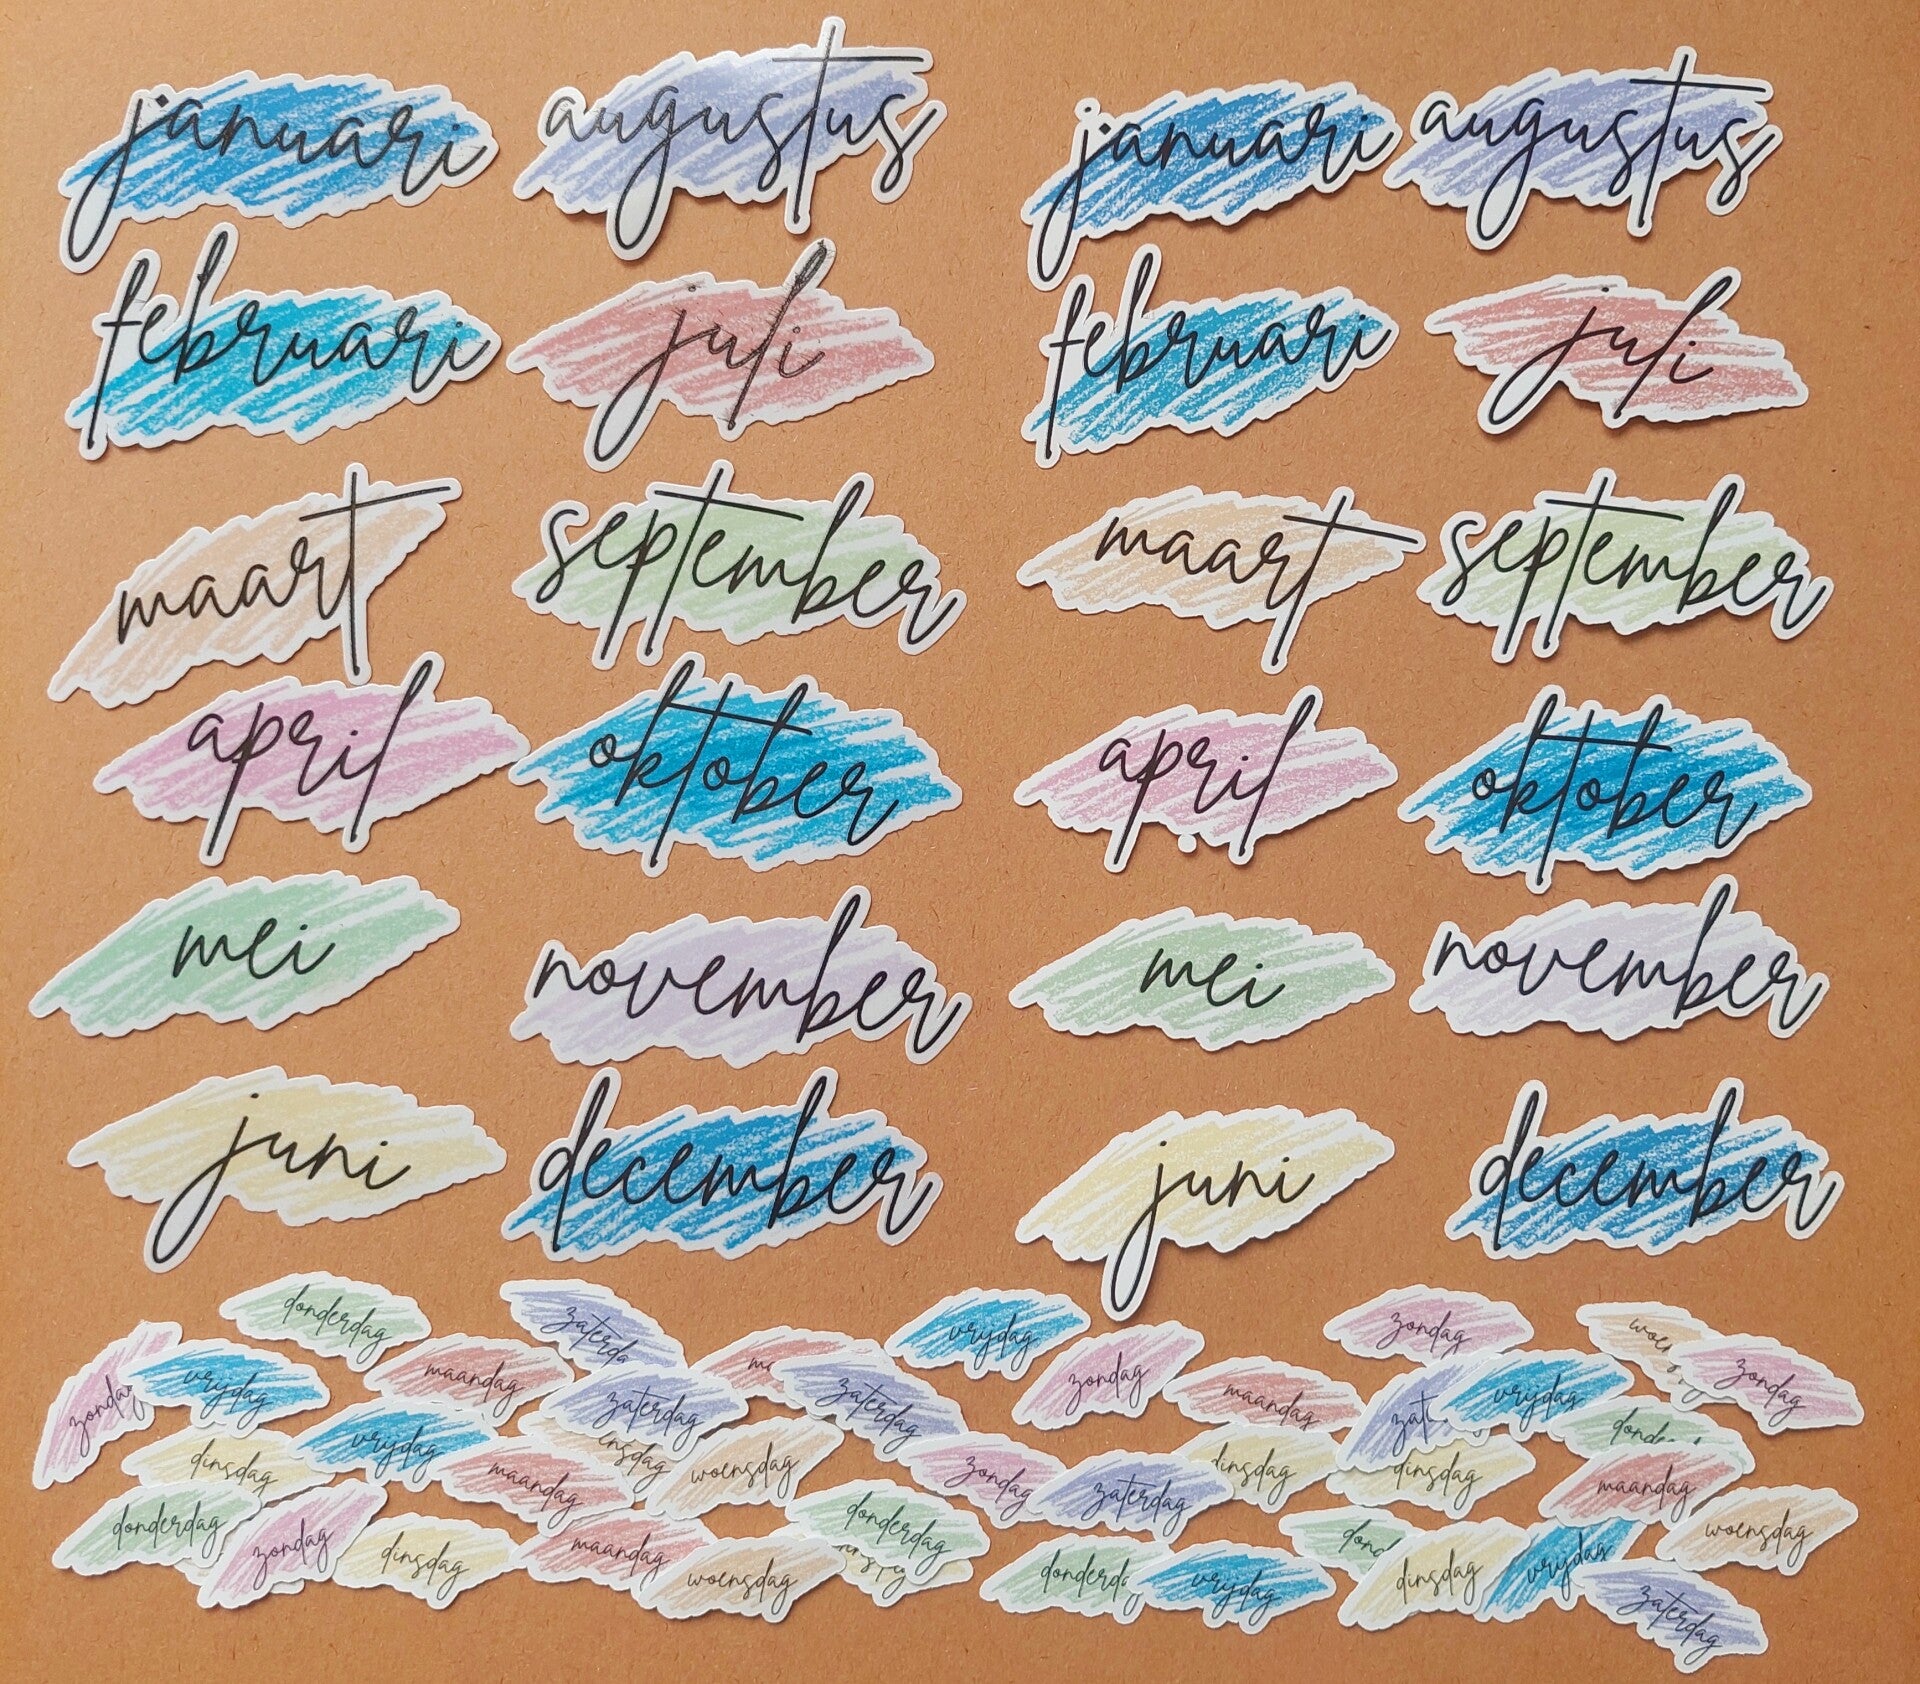 januari augustus januari augustus
februari juli februari juli
maart september maart september
april oktober april oktober
mei november mei november
juni december juni december
donderdag
zaterda
vrijdag
zondag
woen
zondag
vrijdag
maandag
ma
zaterdag
zondag
maandag
zat
vrijdag
zondag
zaterdag
dinsdag
vrijdag
maandag
insdag
woensdag
zondag
zaterdag
dinsdag
dinsdag
donde
maandag
donderdag
zondag
dinsdag
maandag
woensdag
donderdag
donderda
vrijdag
dond
dinsdag
vrijdag
woensdag
zaterdag